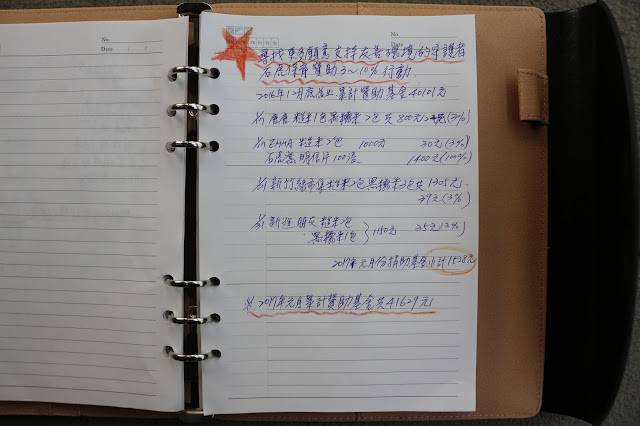 No.
Date
No.
Date
尋找更多願意支持友善環境的守護者
石虎保育贊助3～10%行動.
2016年12月底為止累計贊助基金40101元
糙米1包黑糯米2包共800元 (3%)
EMMA 糙米2包 1000元 30元(3%)
明信片100 1400元(100%)
新竹 市集糙米2包黑糯米2包共1305元.
39元(3%)
新進朋友糙米2包
黑糯米1包 1150元 35元(3%)
2017年元月份捐助基金小計1528元
※2017年元月累計贊助基金共41629元